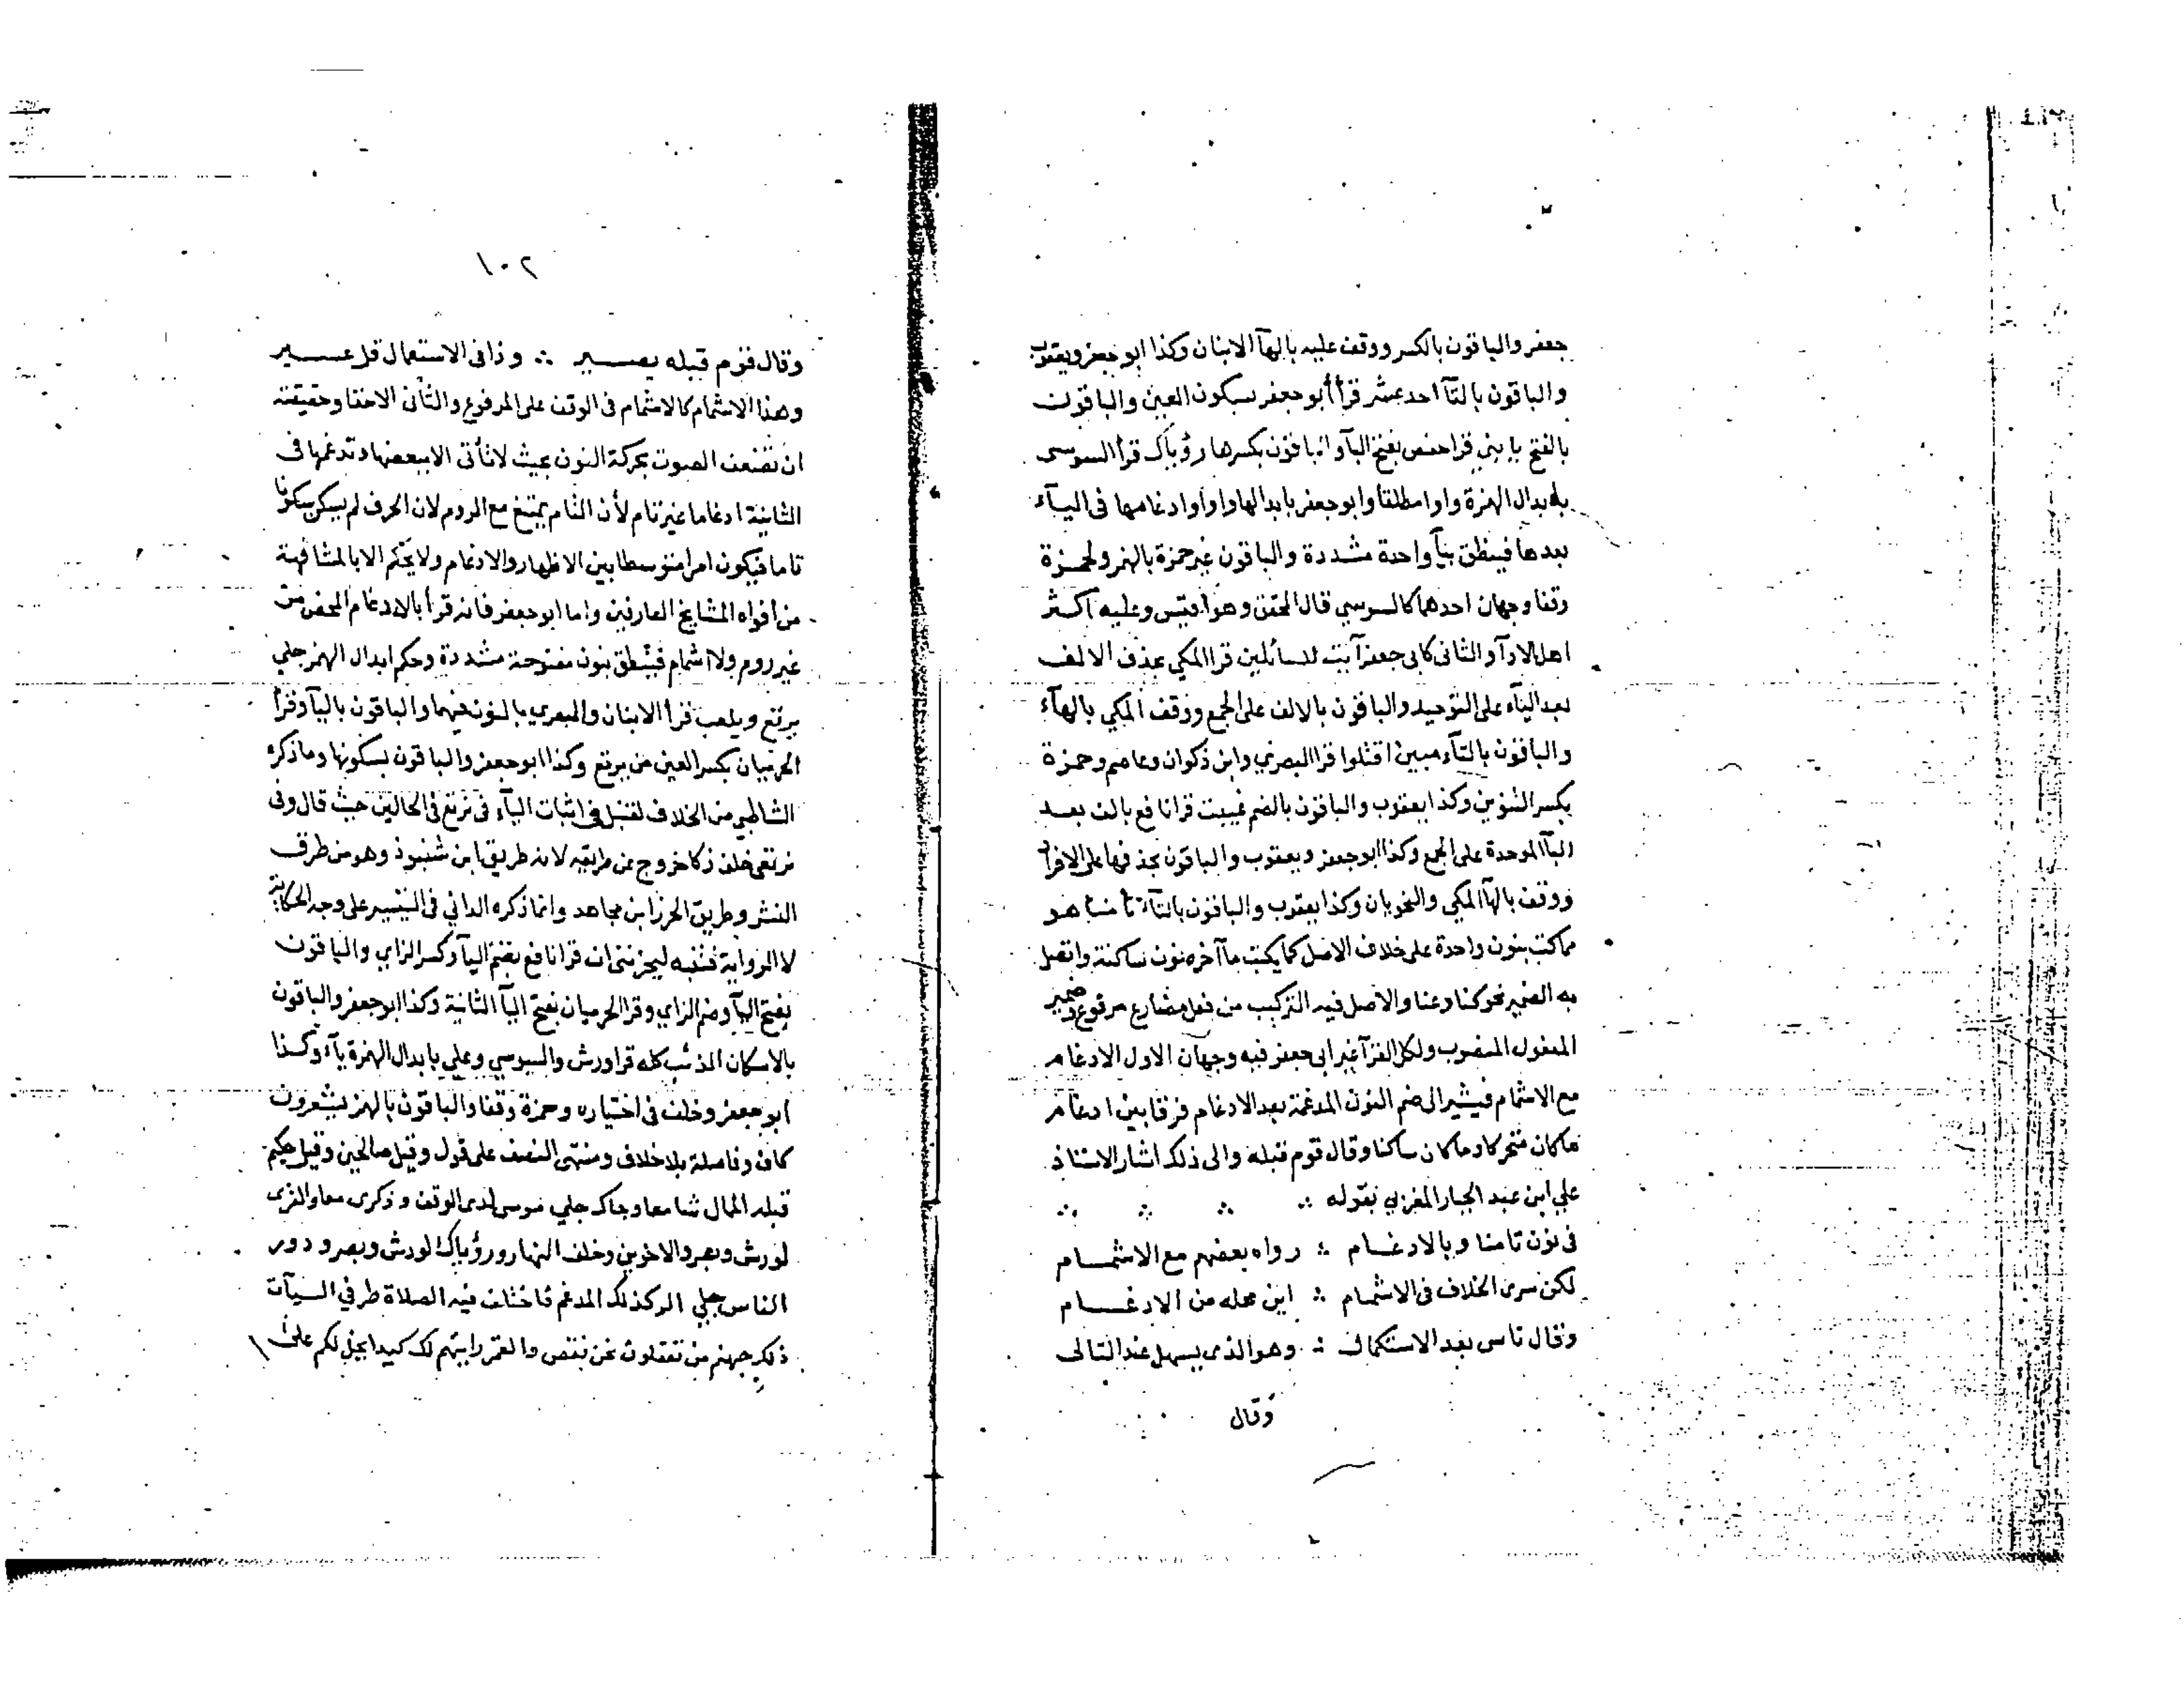 جعفر والباقون بالكسر ووقف عليه بالهآ الابنان وكذا ابو جعفر ويعقوب
والباقون بالتآ احد عشر قرأ أبو جعفر بسكون العين والباقون
بالفتح يا بني قرا حفص بفتح اليآ والباقون بكسرها رؤياك قرأ السوسى
بابدال الهمزة واوا مطلقا وابو جعفر بابدالها واوا وادغامها فى اليآء
بعدها فينطق بيآ واحدة مشددة والباقون غير حمزة بالهمز ولحمزة
وقفا وجهان احدهما كالسوسي قال المحقق وهو اقيس وعليه اكثر
اهل الادآ والثانى كابى جعفر آيت للسائلين قرا المكي بحذف الالف
بعد اليآء على التوحيد والباقون بالالف على الجمع ووقف المكي بالهآء
والباقون بالتآء مبين اقتلوا قرا البصري وابن ذكوان وعاصم وحمزة
بكسر التنوين وكذا يعقوب والباقون بالضم غيبت قرا نافع بالف بعد
البآ الموحدة على الجمع وكذا ابو جعفر ويعقوب والباقون بحذفها على الافراد
ووقف بالهآ المكي والنحويان وكذا يعقوب والباقون بالتآء تأمنا هو
مما كتب بنون واحدة على خلاف الاصل كما يكتب ما آخره نون ساكنة واتصل
به الضمير نحو كنا وعنا والاصل فيه التركيب من فعل مضارع مرفوع وضمير
المفعول المنصوب ولكل القرآ غير ابى جعفر فيه وجهان الاول الادغام
مع الاشمام فيشير الى ضم النون المدغمة بعد الادغام فرقا بين ادغام
ما كان متحركا وما كان ساكنا وقال قوم قبله والى ذلك اشار الاستاذ
علي ابن عبد الجبار المغربي بقوله ∴ ∴ ∴ ∴
فى نون تامنا وبالادغام ∴ رواه بعضهم مع الاشمام
لكن سرى الخلاف فى الاشمام ∴ اين محله من الادغام
وقال ناس بعد الاستكمال ∴ وهو الذى يسهل عند التالى
وقال
١٠٢
وقال قوم قبله يصير ∴ وذا فى الاستعمال قل عسير
وهذا الاشمام كالاشمام فى الوقف على المرفوع والثانى الاخفا وحقيقته
ان تضعف الصوت بحركة النون بحيث لا تأتى الا ببعضها وتدغمها فى
الثانية ادغاما غير تام لأن التام يمتنع مع الروم لان الحرف لم يسكن سكونا
تاما فيكون امرا متوسطا بين الاظهار والادغام ولا يحكم الا بالمشافهة
من أفواه المشايخ العارفين واما ابو جعفر فانه قرأ بالادغام المحض من
غير روم ولا اشمام فينطق بنون مفتوحة مشددة وحكم ابدال الهمز جلي
يرتع ويلعب قرأ الابنان والبصري بالنون فيهما والباقون باليآ وقرأ
الحرميان بكسر العين من يرتع وكذا ابو جعفر والباقون بسكونها وما ذكره
الشاطبي من الخلاف لقنبل فى اثبات اليآء فى نرتع فى الحالين حيث قال وفى
نرتعى خلف زكا خروج عن طريقه لانه طريق ابن شنبوذ وهو من طرف
النشر وطريق الحرز ابن مجاهد وانما ذكره الدانى فى التيسير على وجه الحكاية
لا الرواية فتنبه ليحزننى ان قرا نافع بضم اليآ وكسر الزاي والباقون
بفتح اليآ وضم الزاي وقرا الحرميان بفتح اليآ الثانية وكذا ابو جعفر والباقون
بالاسكان الذئب كله قرا ورش والسوسي وعلي بابدال الهمزة يآء وكذا
ابو جعفر وخلف فى اختياره وحمزة وقفا والباقون بالهمز يشعرون
كاف وفاصلة بلا خلاف ومنتهى النصف على قول وقيل صالحين وقيل حكيم
قبله الممال شا معا وجاك جلي موسى لدى الوقف وذكرى معا والقرى
لورش وبصر والاخوين وخلف النهار ورؤياك لورش وبصر ودور
الناس جلي الر كذلك المدغم فاختلف فيه الصلاة طرفي السيآت
ذلك جهنم من تعقلون نحن نقص والقمر رايتهم لك كيدا يخل لكم على